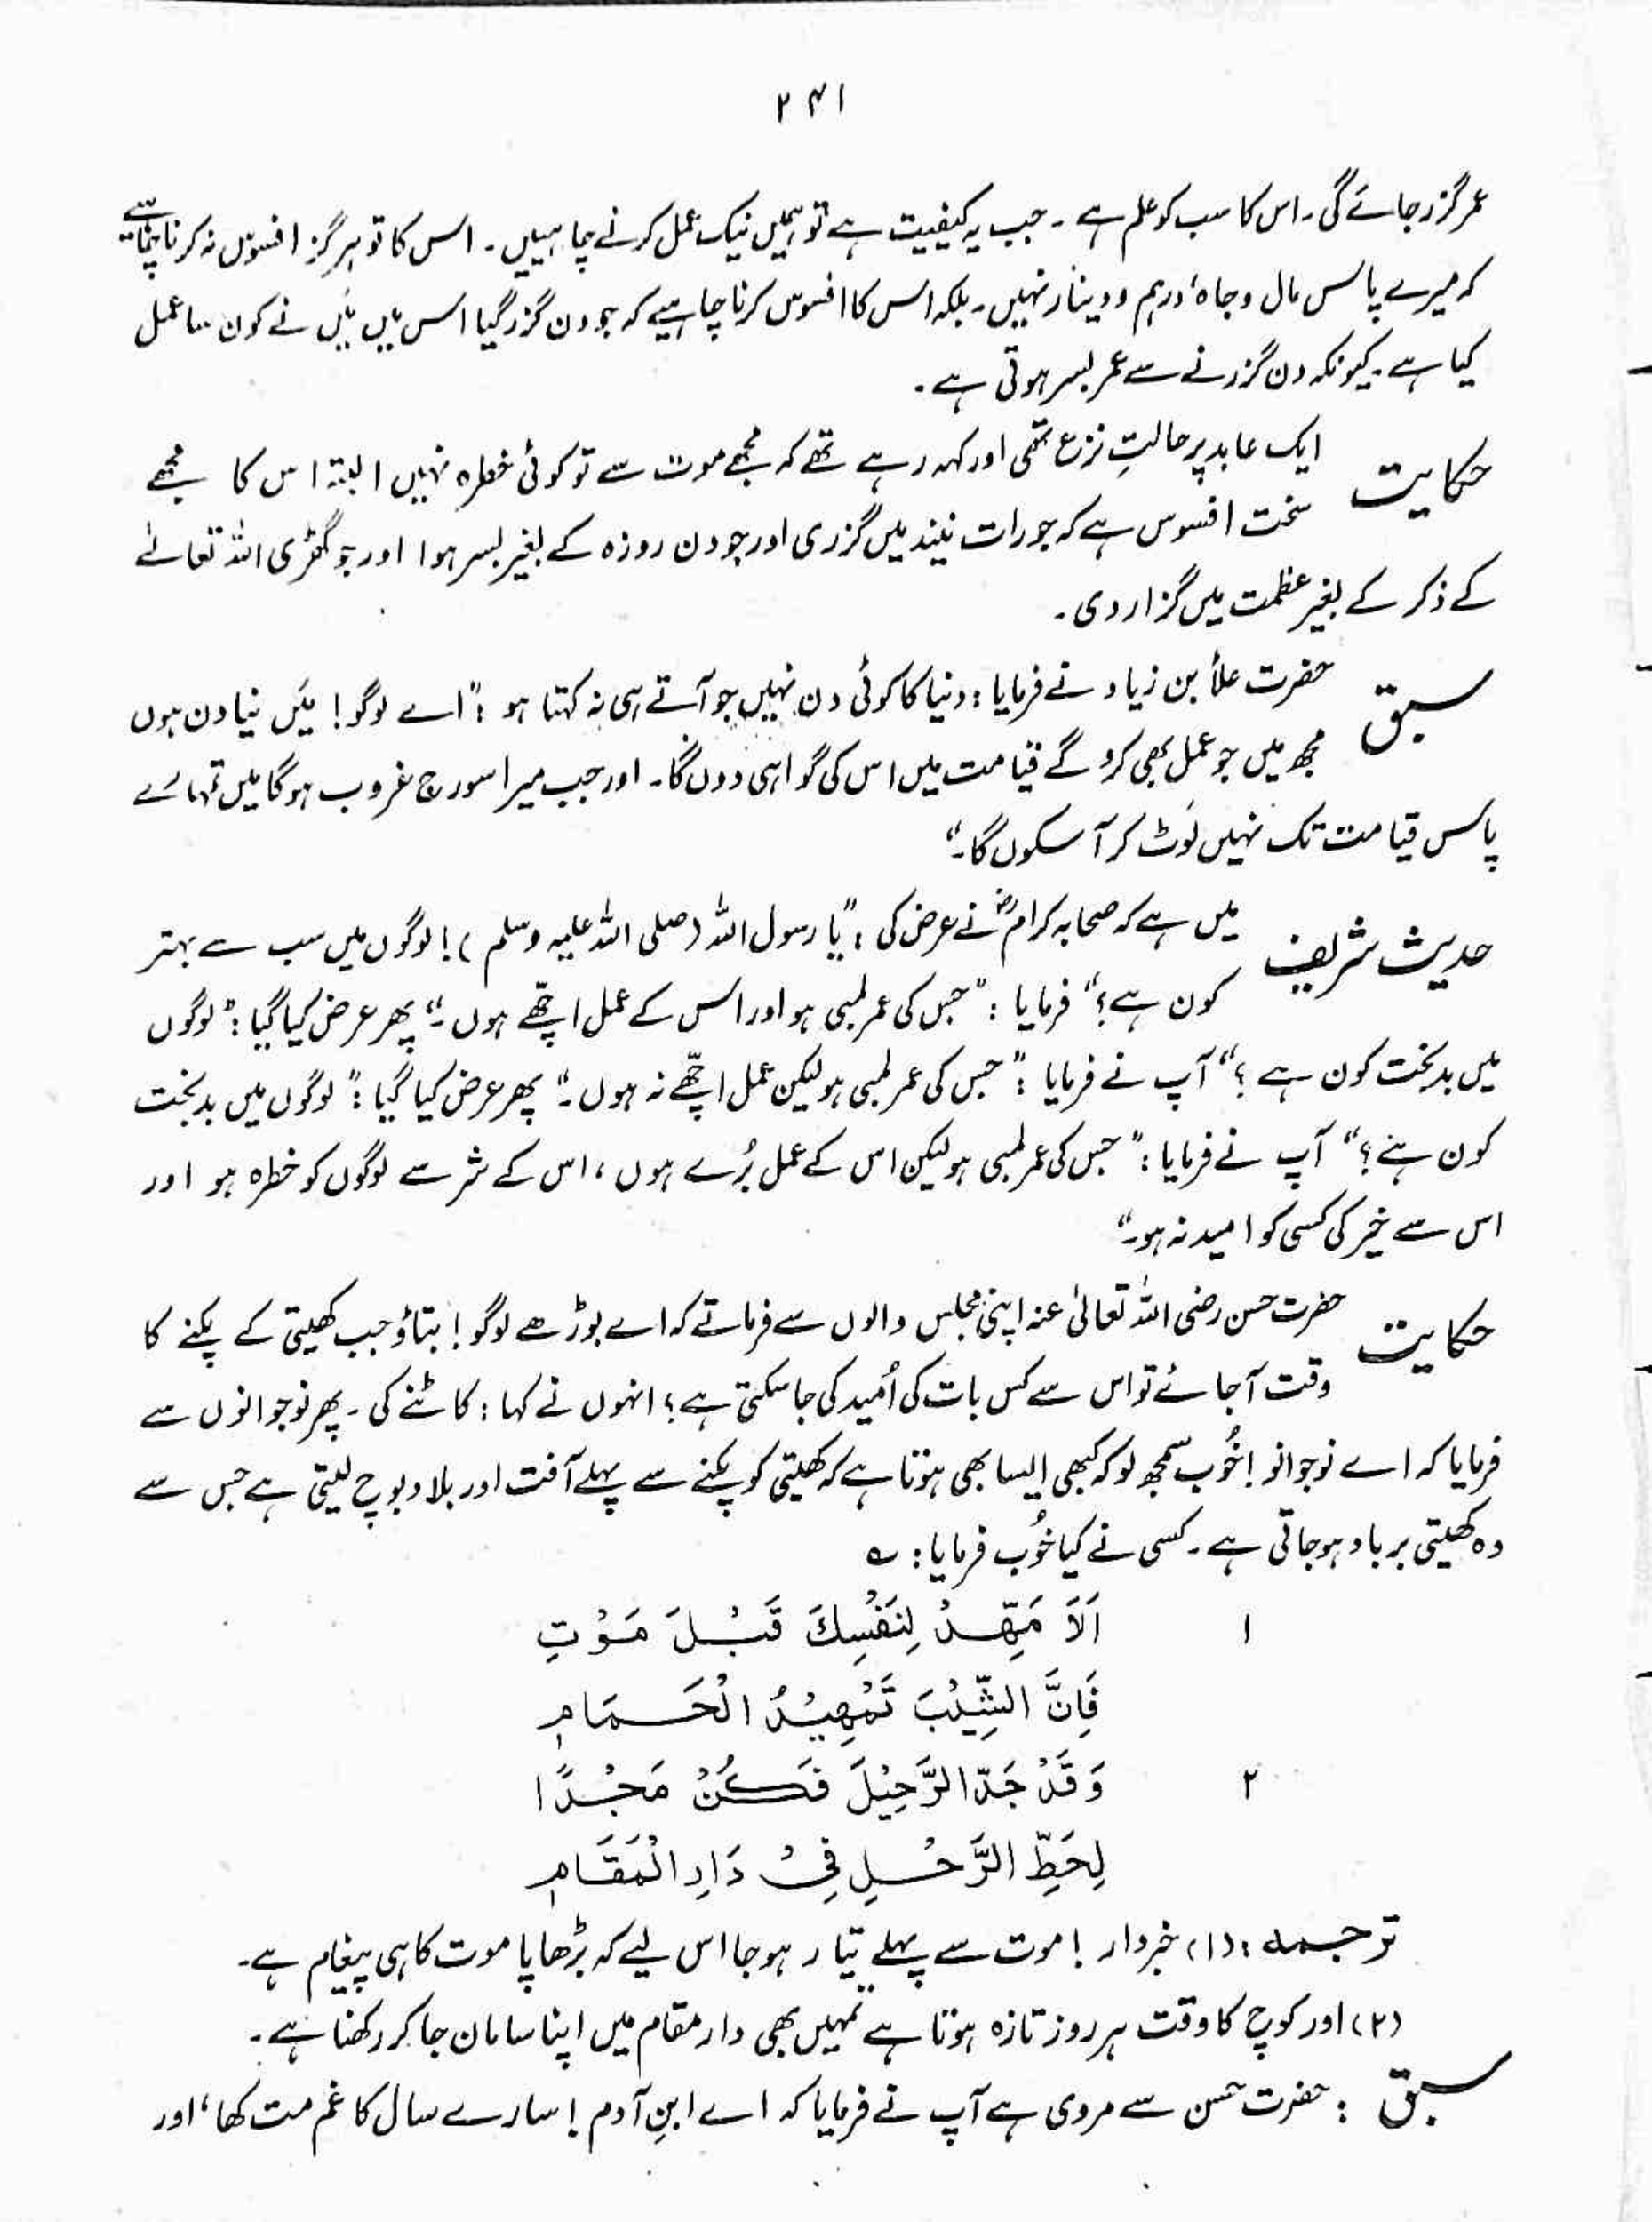 ۲۴۱
عمر گزر جائے گی۔ اس کا سب کو علم ہے ۔ جب یہ کیفیت ہے تو ہمیں نیک عمل کرنے چاہییں ۔ اس کا تو ہرگز افسوس نہ کرنا چاہیے
کہ میرے پاس مال و جاہ، درہم و دینار نہیں۔ بلکہ اس کا افسوس کرنا چاہیے کہ جو دن گزر گیا اس میں میں نے کون سا عمل
کیا ہے ۔ کیونکہ دن گزرنے سے عمر بسر ہوتی ہے ۔
حکایت ایک عابد پر حالتِ نزع تھی اور کہہ رہے تھے کہ مجھے موت سے تو کوئی خطرہ نہیں البتہ اس کا مجھے
سخت افسوس ہے کہ جو رات نیند میں گزری اور جو دن روزہ کے بغیر بسر ہوا اور جو گھڑی اللہ تعالےٰ
کے ذکر کے بغیر عظمت میں گزار دی ۔
سبق حضرت علاٗ بن زیاد نے فرمایا : دنیا کا کوئی دن نہیں جو آتے ہی نہ کہتا ہو : "اے لوگو ! میں نیا دن ہوں
مجھ میں جو عمل بھی کرو گے قیامت میں اس کی گواہی دوں گا۔ اور جب میرا سورج غروب ہوگا میں تمہارے
پاس قیامت تک نہیں لَوٹ کر آ سکوں گا۔"
حدیث شریف میں ہے کہ صحابہ کرامؓ نے عرض کی : "یا رسول اللہ (صلی اللہ علیہ وسلم) ! لوگوں میں سب سے بہتر
کون ہے؟" فرمایا : "جس کی عمر لمبی ہو اور اس کے عمل اچھے ہوں ۔" پھر عرض کیا گیا : "لوگوں
میں بدبخت کون ہے ؟" آپ نے فرمایا : "جس کی عمر لمبی ہو لیکن عمل اچھے نہ ہوں ۔" پھر عرض کیا گیا : "لوگوں میں بدبخت
کون ہے؟" آپ نے فرمایا : "جس کی عمر لمبی ہو لیکن اس کے عمل بُرے ہوں ، اس کے شر سے لوگوں کو خطرہ ہو اور
اس سے خیر کی کسی کو امید نہ ہو۔"
حکایت حضرت حسن رضی اللہ تعالیٰ عنہ اپنی مجلس والوں سے فرماتے کہ اے بوڑھے لوگو ! بتاؤ جب کھیتی کے پکنے کا
وقت آجائے تو اس سے کس بات کی اُمید کی جاسکتی ہے؟ انہوں نے کہا : کاٹنے کی ۔ پھر نوجوانوں سے
فرمایا کہ اے نوجوانو ! خُوب سمجھ لو کہ کبھی ایسا بھی ہوتا ہے کہ کھیتی کو پکنے سے پہلے آفت اور بلا دبوچ لیتی ہے جس سے
وہ کھیتی برباد ہوجاتی ہے ۔ کسی نے کیا خُوب فرمایا : ؎
۱ اَلَا مَهِّدْ لِنَفْسِكَ قَبْلَ مَوْتِ
فَاِنَّ الشَّيْبَ تَمْهِيْدُ الْحَمَامِ
۲ وَقَدْ جَدَّ الرَّحِيْلَ فَكُنْ مَجْدًّا
لِحَطِّ الرَّحْلِ فِيْ دَارِ الْمَقَامِ
ترجمہ : (۱) خبردار ! موت سے پہلے تیار ہو جا اس لیے کہ بڑھاپا موت کا ہی پیغام ہے۔
(۲) اور کوچ کا وقت ہر روز تازہ ہوتا ہے تمہیں بھی دار مقام میں اپنا سامان جا کر رکھنا ہے ۔
سبق : حضرت حسن سے مروی ہے آپ نے فرمایا کہ اے ابنِ آدم ! سارے سال کا غم مت کھا ، اور